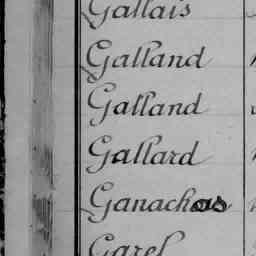 Gallais
Galland
Galland
Gallard
Ganachas
Garel